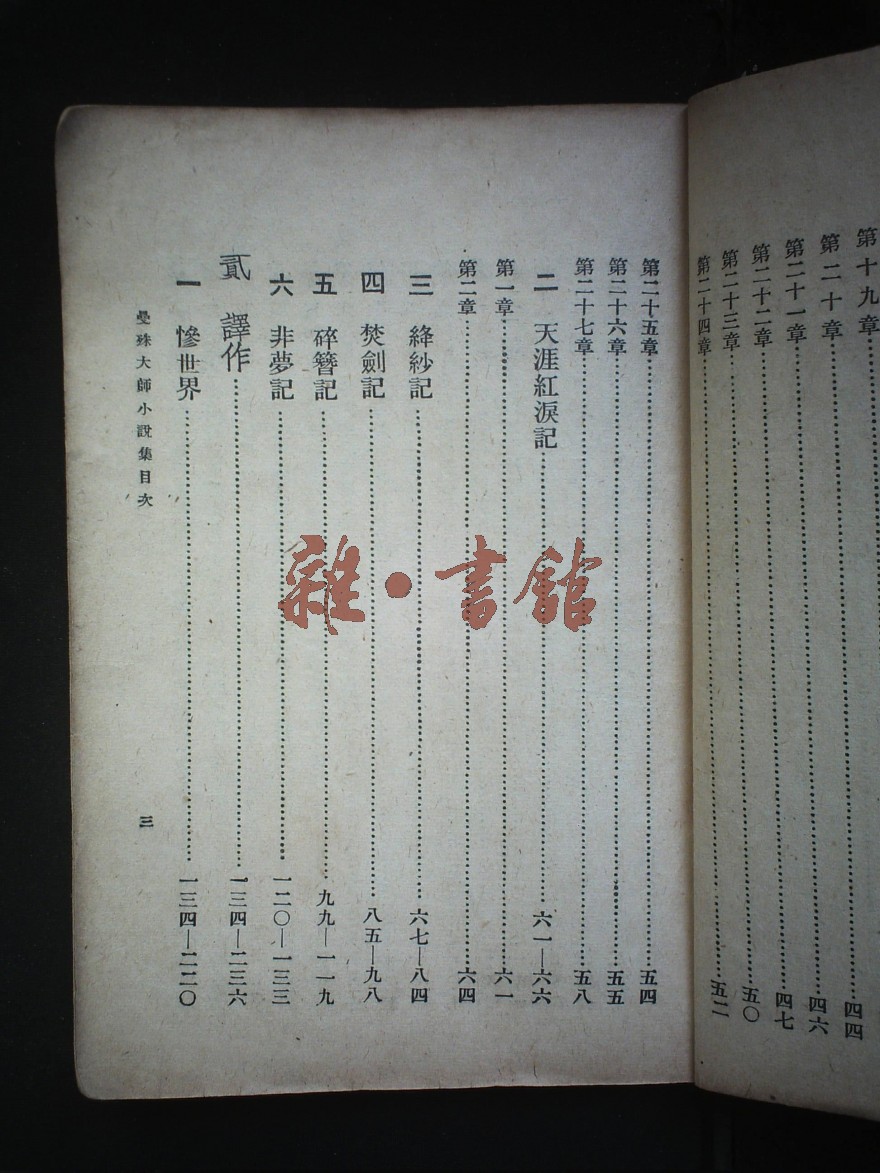 第十九章……四四
第二十章……四六
第二十一章……四七
第二十二章……五〇
第二十三章……五二
第二十四章
第二十五章……五四
第二十六章……五五
第二十七章……五八
二 天涯紅淚記……六一—六六
第一章……六一
第二章……六四
三 絳紗記……六七—八四
四 焚劍記……八五—九八
五 碎簪記……九九—一一九
六 非夢記……一二〇—一三三
貳 譯作……一三四—二三六
一 慘世界……一三四—二二〇
曼殊大師小說集目次
三
雜·書館